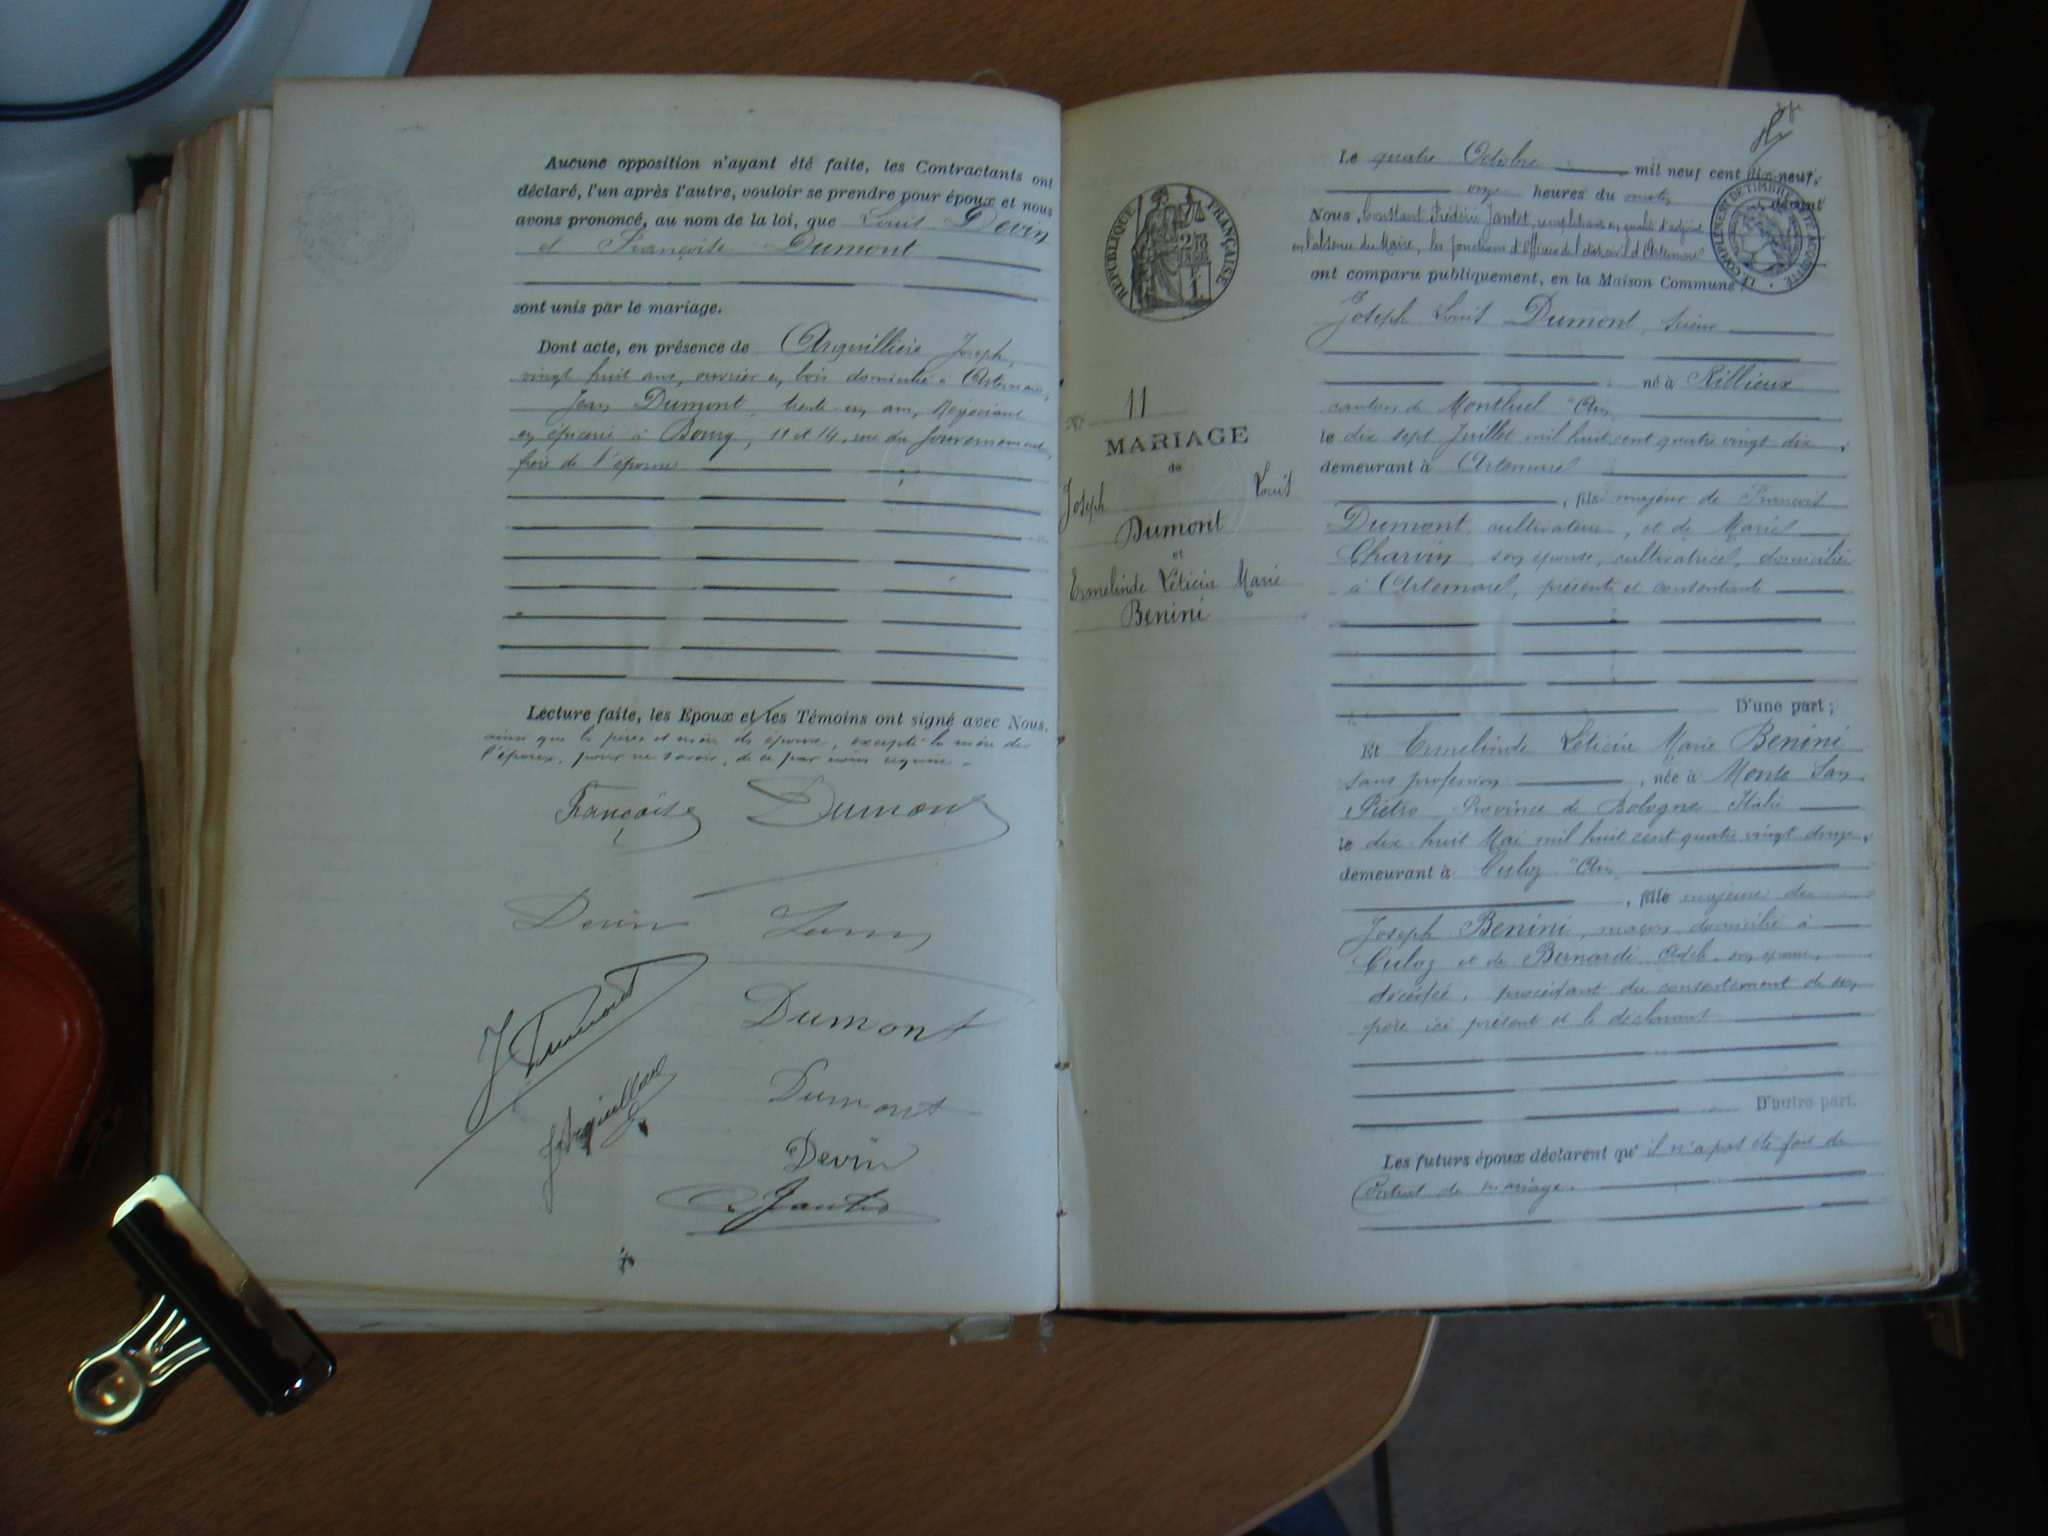 Aucune opposition n'ayant été faite, les Contractants ont
déclaré, l'un après l'autre, vouloir se prendre pour époux et nous
avons prononcé, au nom de la loi, que Louis Devin
et Françoise Dumont
sont unis par le mariage.
Dont acte, en présence de Arquillière Joseph,
vingt huit ans, ouvrier en bois domicilié à Artemare,
Jean Dumont, trente un ans, Négociant
en épicerie à Bourg, 11 et 14, rue du Gouvernement,
frère de l'épouse
Lecture faite, les Epoux et les Témoins ont signé avec Nous,
ainsi que les pères et mères des époux, excepté la mère de
l'époux, pour ne savoir, de ce par nous requise.
Françoise Dumont
Devin Louis
J Dumont
Dumont
Dumont
Devin
C. Jantet
RÉPUBLIQUE FRANÇAISE
N° 11
MARIAGE
de
Joseph Louis
Dumont
et
Ermelinde Léticia Marie
Benini
Le quatre Octobre mil neuf cent dix-neuf,
onze heures du matin devant
Nous, Constant Frédéric Jantet, remplissant en qualité d'adjoint
en l'absence du Maire, les fonctions d'Officier de l'état civil d'Artemare
ont comparu publiquement, en la Maison Commune,
LE COMPLÉMENT DE TIMBRE
Joseph Louis Dumont, scieur
né à Rillieux
canton de Montluel "Ain
le dix sept Juillet mil huit cent quatre vingt dix,
demeurant à Artemare
, fils majeur de François
Dumont, cultivateur, et de Marie
Charvin, son épouse, cultivatrice, domiciliés
à Artemare, présents et consentants
D'une part ;
Et Ermelinde Léticia Marie Benini
sans profession, née à Monte San
Pietro Province de Bologne Italie
le dix-huit Mai mil huit cent quatre vingt douze,
demeurant à Culoz "Ain
, fille majeure de
Joseph Benini, maçon domicilié à
Culoz et de Bernardi Adèle son épouse,
décédée, procédant du consentement de son
père ici présent et le déclarant
D'autre part.
Les futurs époux déclarent qu'il n'a pas été fait de
Contrat de mariage.